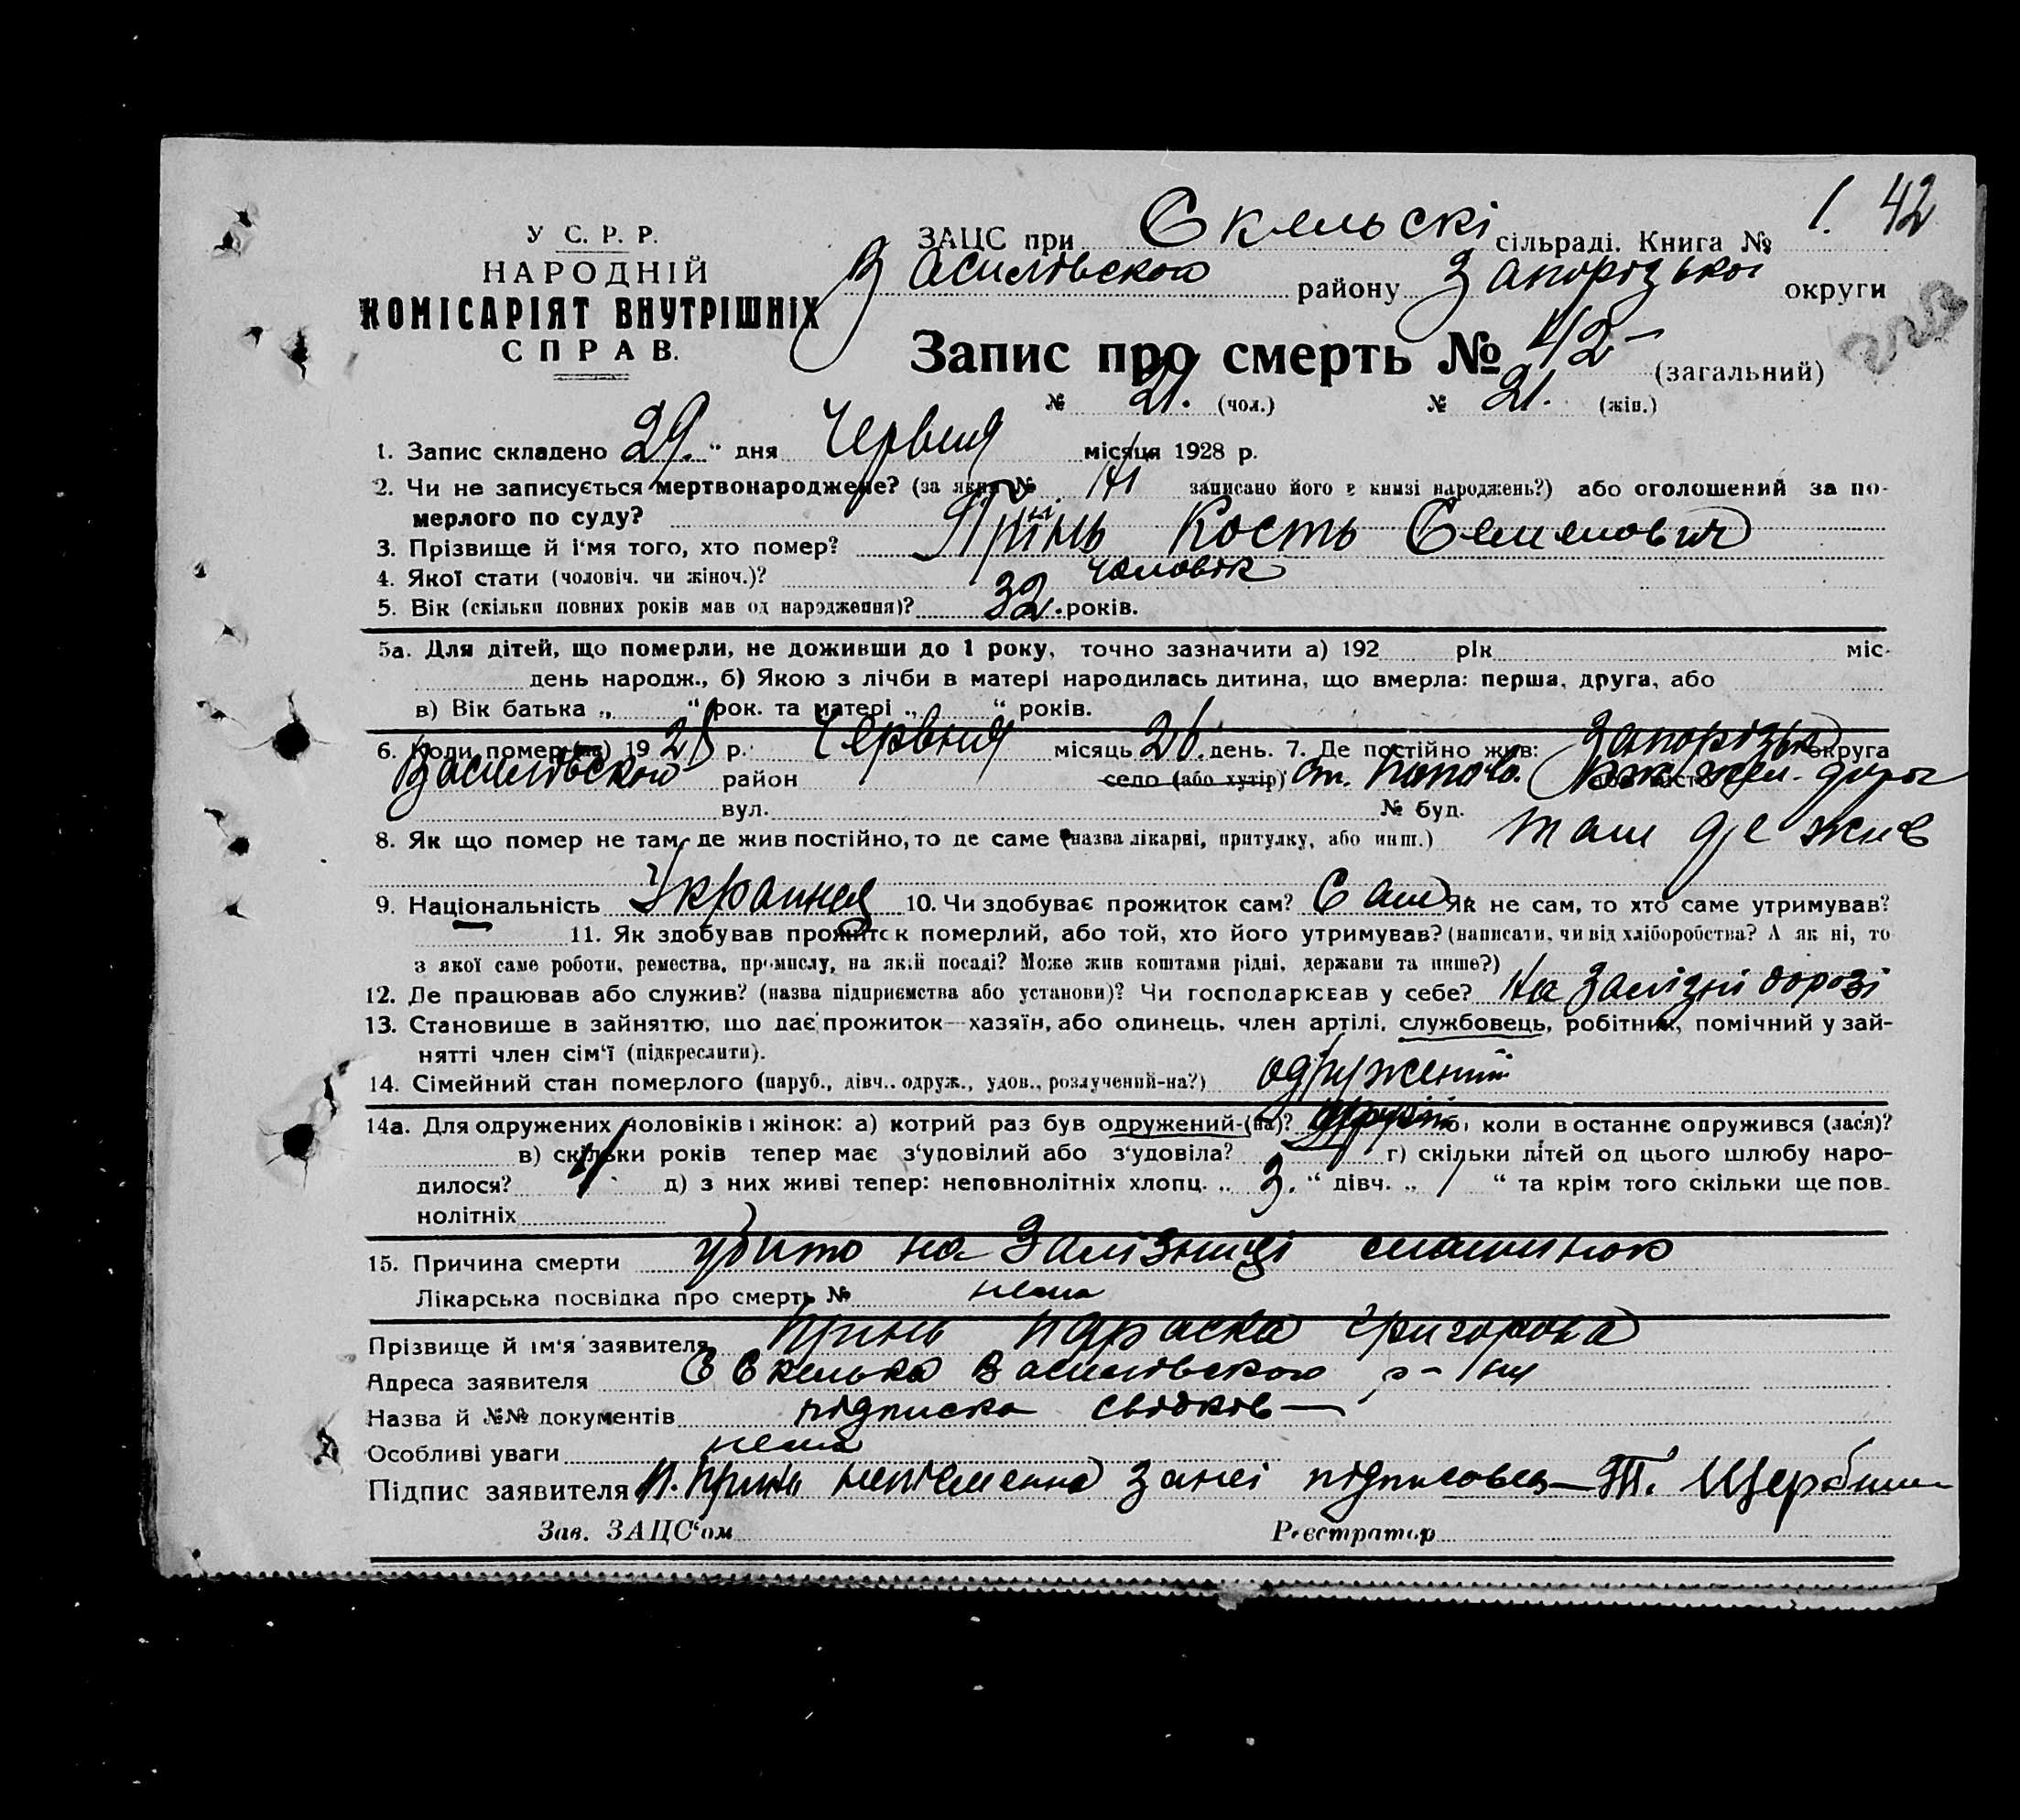 1. 42
У С. Р. Р.
НАРОДНІЙ
КОМІСАРІЯТ ВНУТРІШНІХ
СПРАВ.
ЗАЦС при Скельскі сільраді. Книга №
Василівского району Запорізької округи
Запис про смерть № 42 (загальний)
№ 21. (чол.) № 21. (жін.)
1. Запис складено 29. “ дня Червня місяця 1928 р.
2. Чи не записується мертвонароджене? (за яким № записано його в книзі народжень?) або оголошений за по-
мерлого по суду? ні
3. Прізвище й і'мя того, хто помер? Прінь Кость Семенович
4. Якої стати (чоловіч. чи жіноч.)? чоловік
5. Вік (скільки повних років мав од народження)? 32. років.
5а. Для дітей, що померли, не доживши до 1 року, точно зазначити а) 192 рік міс-
день народж., б) Якою з лічби в матері народилась дитина, що вмерла: перша, друга, або
в) Вік батька „ “ рок. та матері „ “ років.
6. Коли помер(ла) 1928 р. Червня місяць 26. день. 7. Де постійно жив: Запорізьк округа
Василівской район село (або хутір) ст. Попово жел. дорог
вул. № буд.
8. Як що помер не там, де жив постійно, то де саме (назва лікарні, притулку, або инш.) там де жив
9. Національність Українец 10. Чи здобуває прожиток сам? Сам Як не сам, то хто саме утримував?
11. Як здобував прожиток померлий, або той, хто його утримував? (написати, чи від хліборобства? А як ні, то
з якої саме роботи, ремества, промислу, на якій посаді? Може жив коштами рідні, держави та инше?)
12. Де працював або служив? (назва підприємства або установи)? Чи господарював у себе? На Залізній дорозі
13. Становище в зайняттю, що дає прожиток—хазяїн, або одинець, член артілі, службовець, робітник, помічний у зай-
нятті член сім'ї (підкреслити).
14. Сімейний стан померлого (паруб., дівч., одруж., удов., розлучений-на?) одружений
14а. Для одружених чоловіків і жінок: а) котрий раз був одружений-(на)? б) коли в останнє одружився (лася)?
в) скільки років тепер має з'удовілий або з'удовіла? г) скільки дітей од цього шлюбу наро-
дилося? 4 д) з них живі тепер: неповнолітніх хлопц. „ 3. “ дівч. „ 1 “ та крім того скільки ще пов-
нолітніх
15. Причина смерти убито на Залізниці
Лікарська посвідка про смерть № нема
Прізвище й ім'я заявителя Прінь Параска Григорова
Адреса заявителя С Скелька Василівського р-ну
Назва й №№ документів підписка свідків
Особливі уваги нема
Підпис заявителя П. Прінь неписменна за неї підписався Т. Щербина
Зав. ЗАЦС'ом Реєстратор